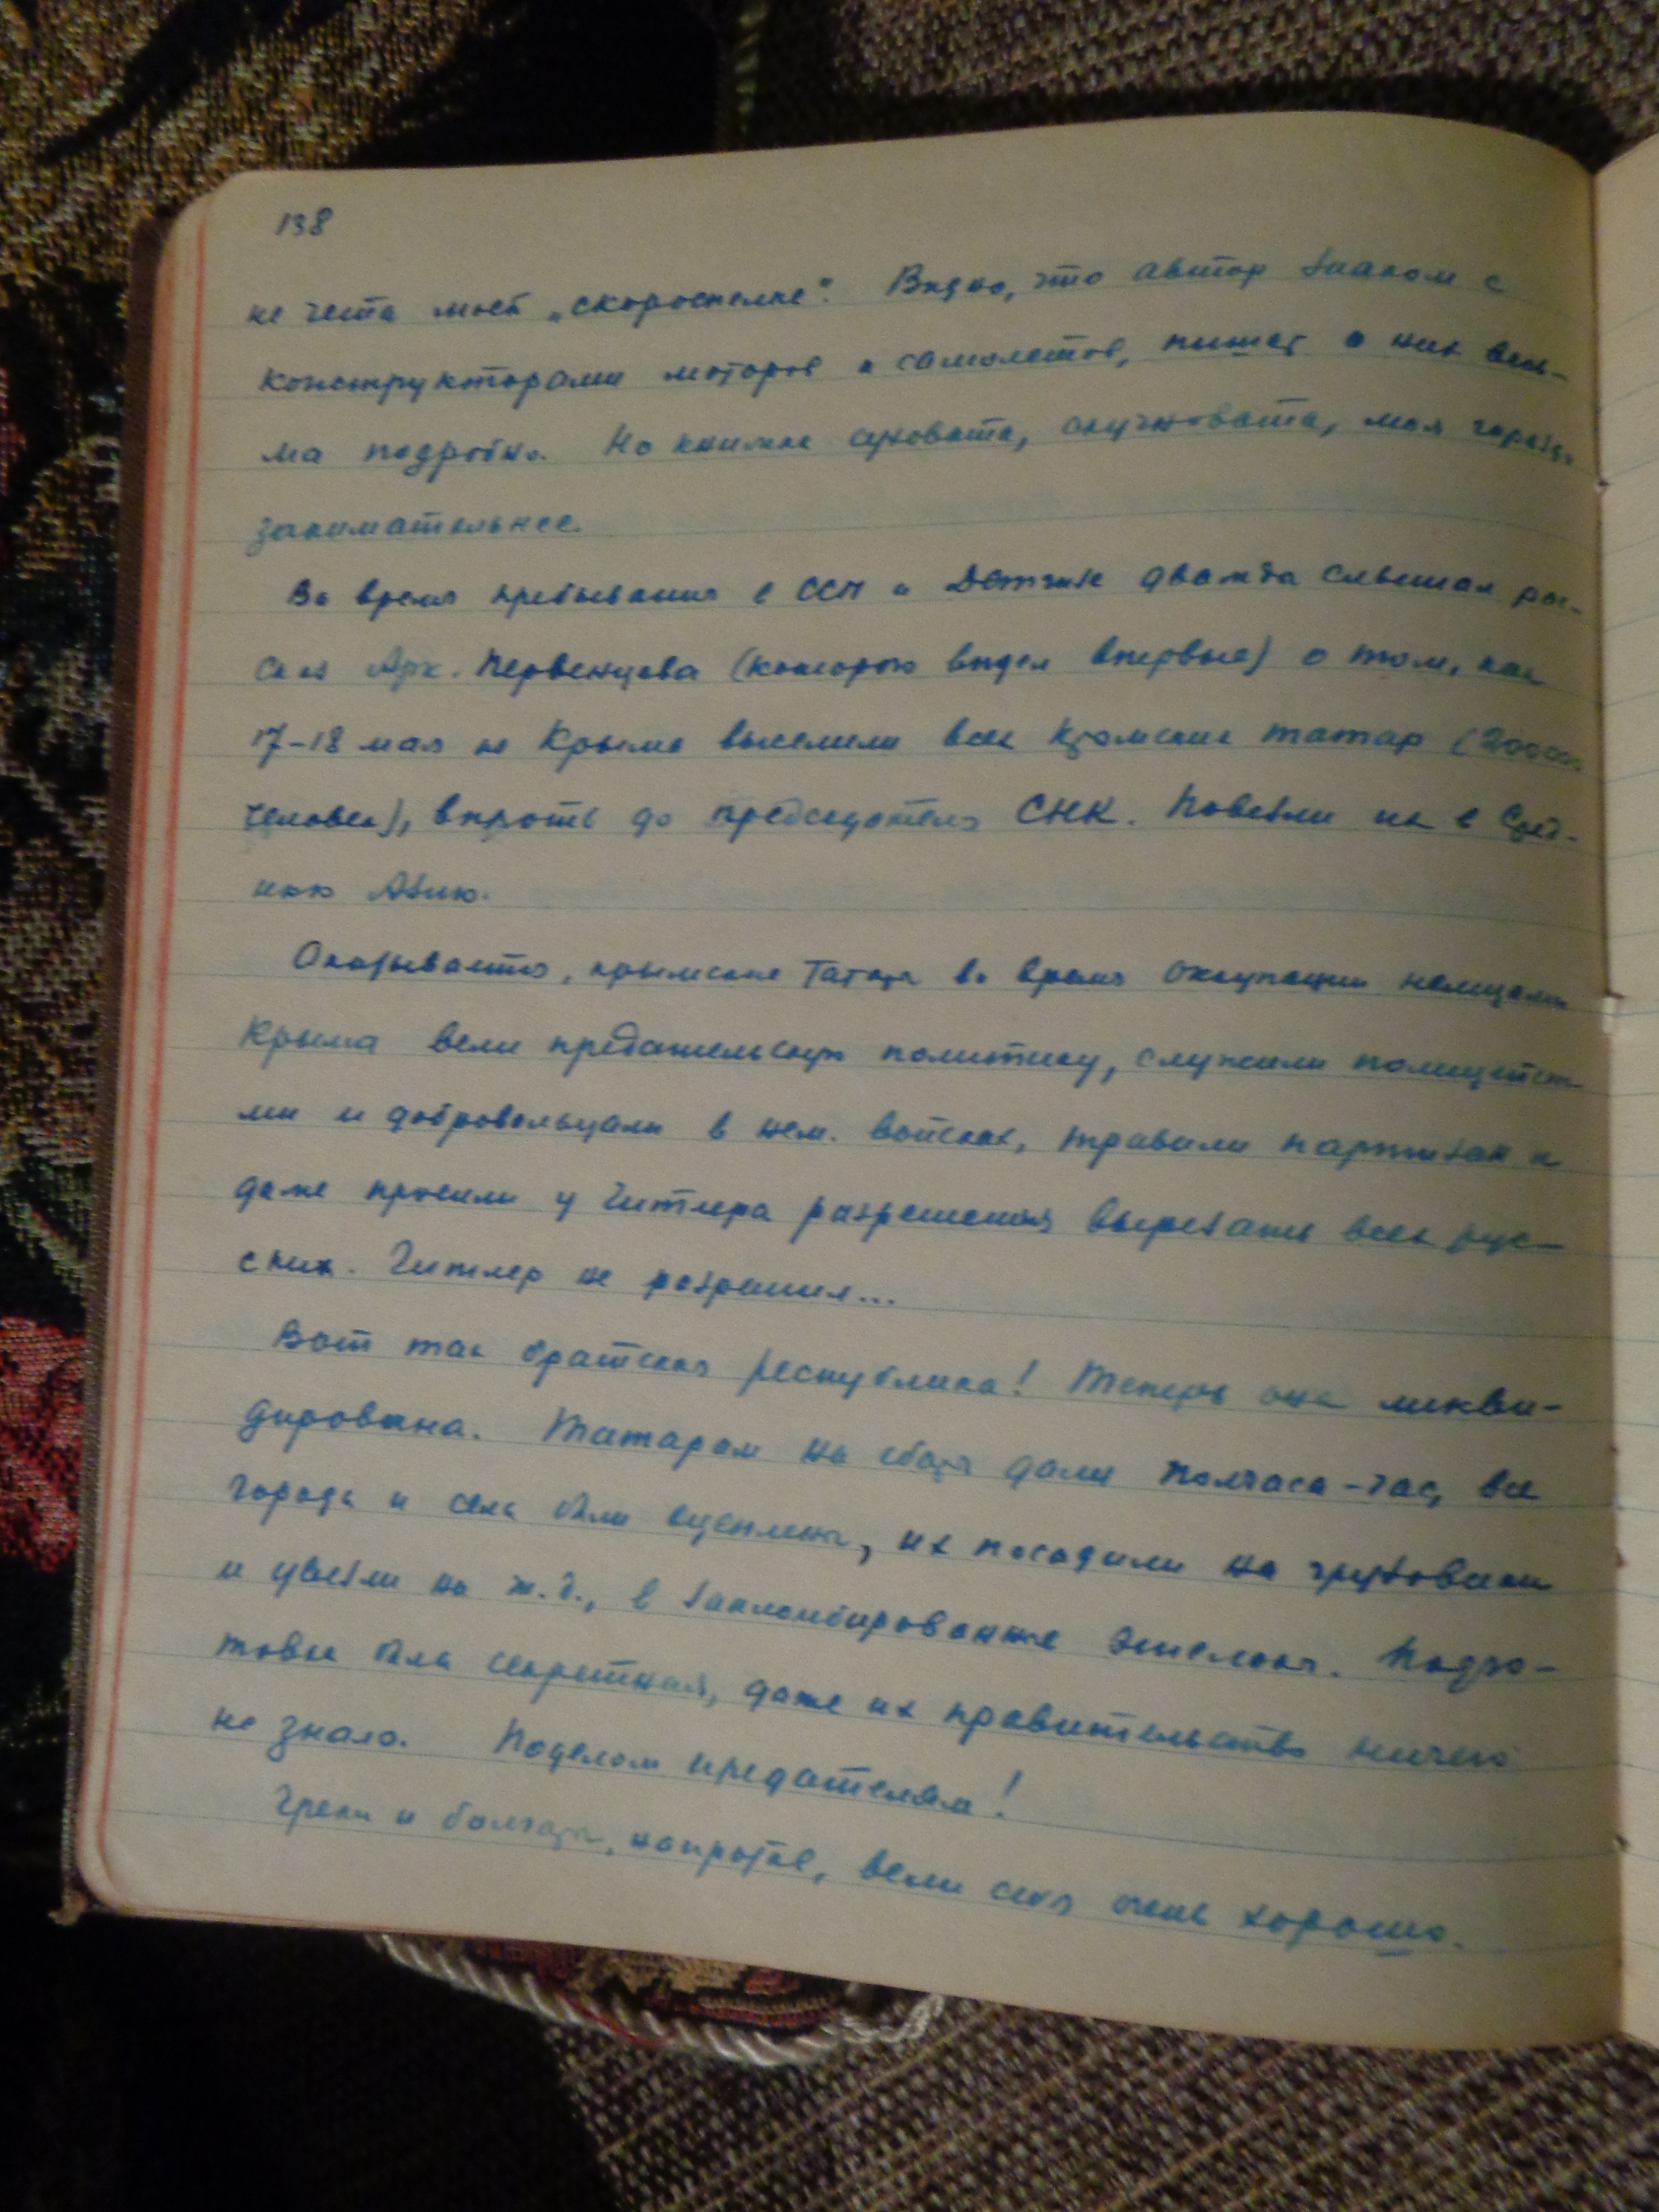 138
не чета моей „скороспелке". Видно, что автор знаком с
конструкторами моторов и самолетов, пишет о них весь-
ма подробно. Но книжка суховата, скучновата, моя гораздо
занимательнее.
Во время пребывания в ССП и Детгизе дважды слышал рас-
сказ Арк. Первенцева (которого видел впервые) о том, как
17-18 мая из Крыма выселили всех крымских татар (200000
человек), вплоть до председателя СНК. Повезли их в Сред-
нюю Азию.
Оказывается, крымские татары во время оккупации немцами
Крыма вели предательскую политику, служили полицейски-
ми и добровольцами в нем. войсках, травили партизан и
даже просили у Гитлера разрешения вырезать всех рус-
ских. Гитлер не разрешил...
Вот так братская республика! Теперь она ликви-
дирована. Татарам на сборы дали полчаса-час, все
города и села были оцеплены, их посадили на грузовики
и увезли на ж.д., в запломбированные эшелоны. Подго-
товка была секретная, даже их правительство ничего
не знало. Поделом предателям!
Греки и болгары, напротив, вели себя очень хорошо.